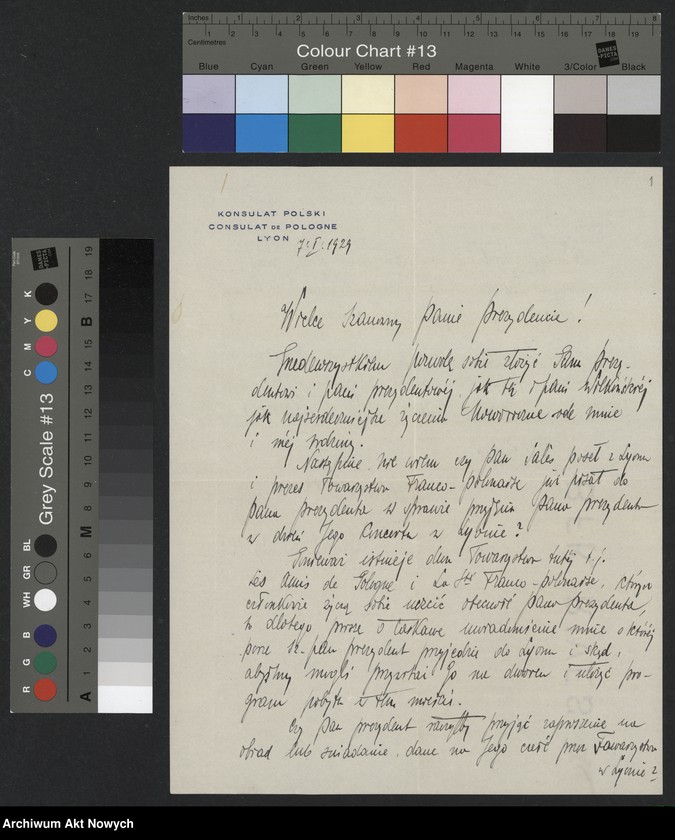 Inches 1 2 3 4 5 6 7 8
1 2 3 4 5 6 7 8 9 10 11 12 13 14 15 16 17 18 19
Centimetres
Colour Chart #13
DANES PICTA
Blue Cyan Green Yellow Red Magenta White 3/Color Black
1
KONSULAT POLSKI
CONSULAT DE POLOGNE
LYON 7.I.1929
Wielce szanowny panie prezydencie!
Przedewszystkiem pozwolę sobie złożyć Panu prezy-
dentowi i pani prezydentowej, jak też i pani
jak najserdeczniejsze życzenia Noworoczne ode mnie
i mej rodziny.
Następnie nie wiem czy pan poseł z Lyonu
i prezes Towarzystwa Franco-polonaise już pisał do
pana prezydenta w sprawie przyjęcia pana prezydenta
w dniu Jego Concertu w Lyonie?
Ponieważ istnieje dwa Towarzystwa tutej t.j.
Les Amis de Pologne i La Sté Franco-polonaise, którzy
członkowie życzą sobie uczcić obecność pana prezydenta,
to dlatego proszę o łaskawe uwiadomienie mnie o której
porze Sz. pan prezydent przyjedzie do Lyonu i skąd,
abyśmy mogli przywitać Go na dworcu i ułożyć pro-
gram pobytu w tem mieście.
Czy pan prezydent raczyłby przyjąć zaproszenie na
obiad lub śniadanie, dane na Jego cześć przez Towarzystwa
w Lyonie?
Grey Scale #13
C M Y K
R G B WH GR BL
A 1 2 3 4 5 6 M 8 9 10 11 12 13 14 15 B 17 18 19
Archiwum Akt Nowych